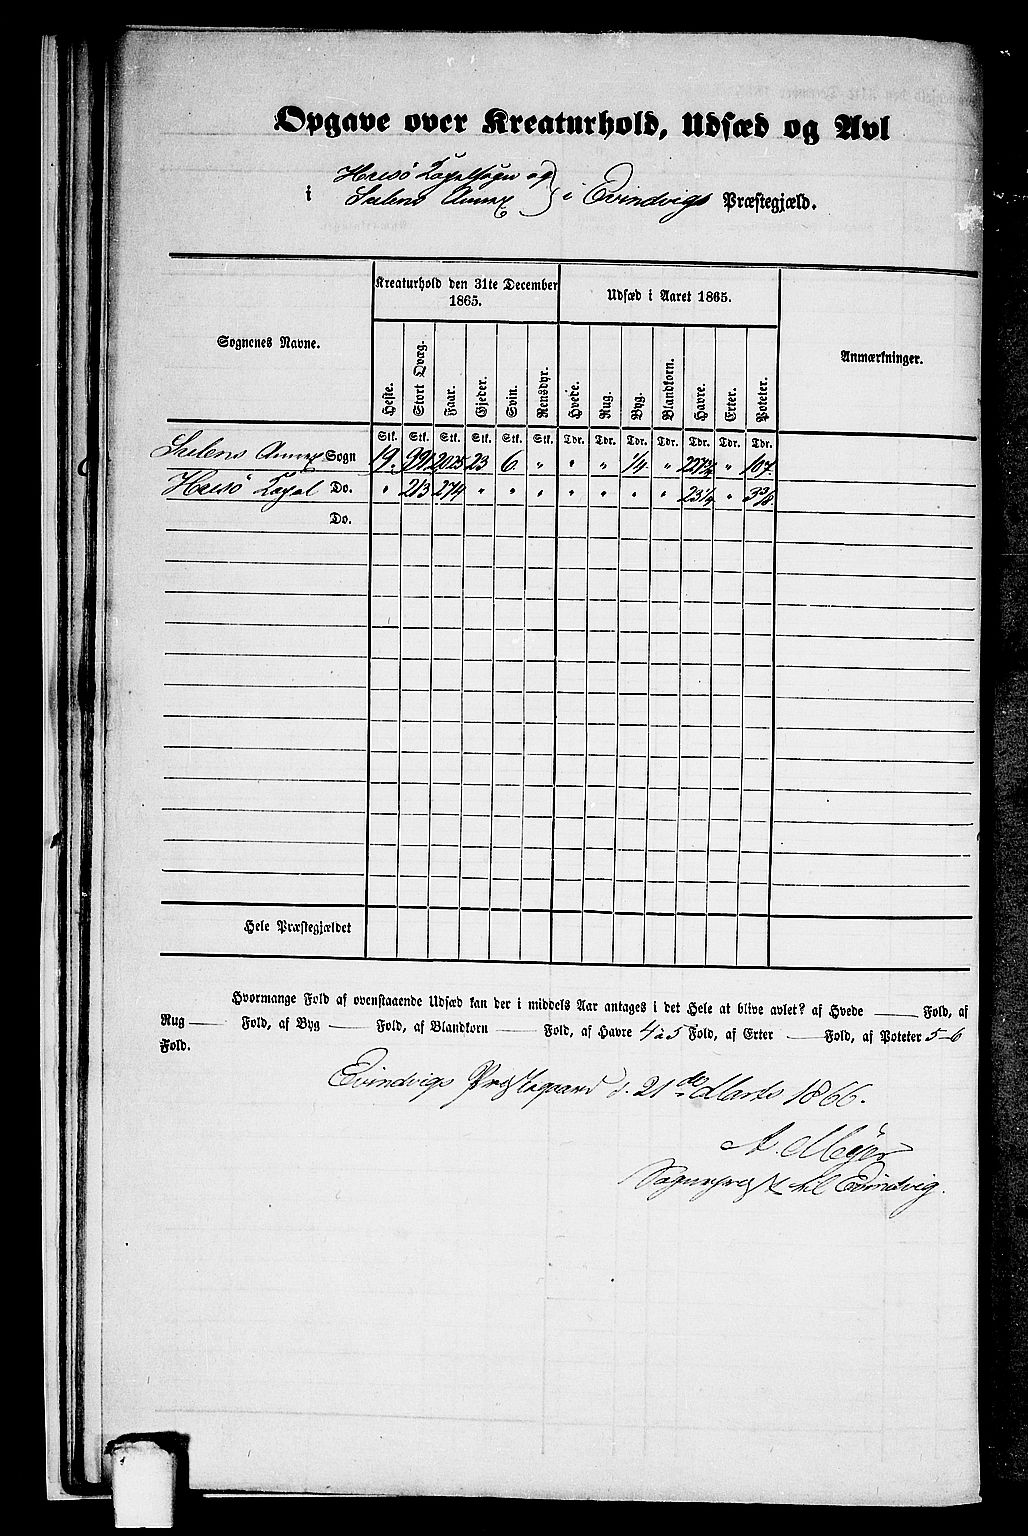 Opgave over Kreaturhold, Udsæd og Avl
Huusø Capelsogn og
i Sulens Annex } i Evindvigs Præstegjæld.
Sognenes Navne. Kreaturhold den 31te December 1865. Udsæd i Aaret 1865. Anmærkninger.
Heste. Stort Qvæg. Faar. Gjeder. Svin. Rensdyr. Hvede. Rug. Byg. Blandkorn. Havre. Erter. Poteter.
Stk. Stk. Stk. Stk. Stk. Stk. Tdr. Tdr. Tdr. Tdr. Tdr. Tdr. Tdr.
Sulens Annex Sogn 19. 991 2025 23 6 " " " 1/4 " " 107.
Huusø Capel Do. " 213 274 " " " " " " " 23 1/4 "
Do.
Hele Præstegjældet
Hvormange Fold af ovenstaaende Udsæd kan der i middels Aar antages i det Hele at blive avlet? af Hvede —— Fold, af
Rug —— Fold, af Byg —— Fold, af Blandkorn —— Fold, af Havre 4 à 5 Fold, af Erter —— Fold, af Poteter 5-6
Fold.
Evindvigs Præstegaard d. 21de Marts 1866.
A. Meyer
Sognepræst til Evindvig.